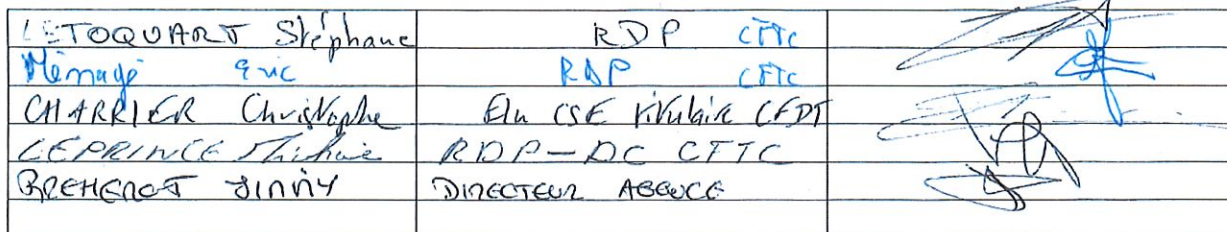 LETOQUART Stéphane RDP CFTC
Ménagé Eric RDP CFTC
CHARRIER Christophe Elu CSE titulaire CFDT
LEPRINCE RDP-DC CFTC
JINNY DIRECTEUR AGENCE